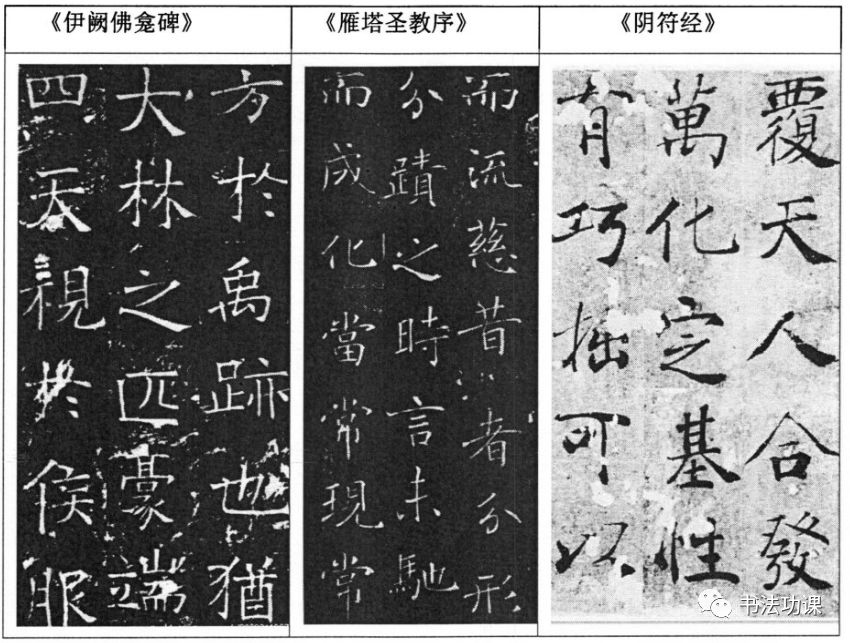 《伊阙佛龛碑》
方於禹跡也猶
大林之匹豪端
四天視於侯服
《雁塔圣教序》
而流慈昔者分形
分蹟之時言未馳
而成化當常現常
《阴符经》
覆天人合發
萬化定基性
有巧拙可以
书法功课